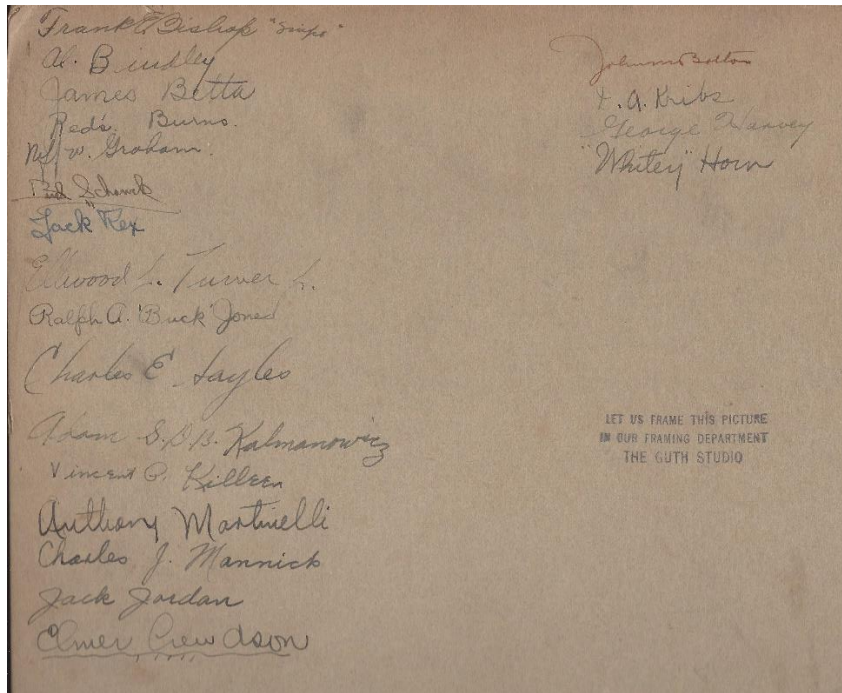 Frank E. Bishop "Simps"
Al. Bindley
James Betta
Red's. Burns.
W. Graham.
Bud Schenck
Jack "Rex
Ellwood L. Turner Jr.
Ralph A. "Buck" Jones
Charles E. Sayles
Adam S.B.B. Kalmanowicz
Vincent P. Killeen
Anthony Martinelli
Charles J. Mannick
Jack Jordan
Elmer Crewdson
Johnny Bolton
A. Kribs
George Harvey
"Whitey" Horn
LET US FRAME THIS PICTURE
IN OUR FRAMING DEPARTMENT
THE GUTH STUDIO